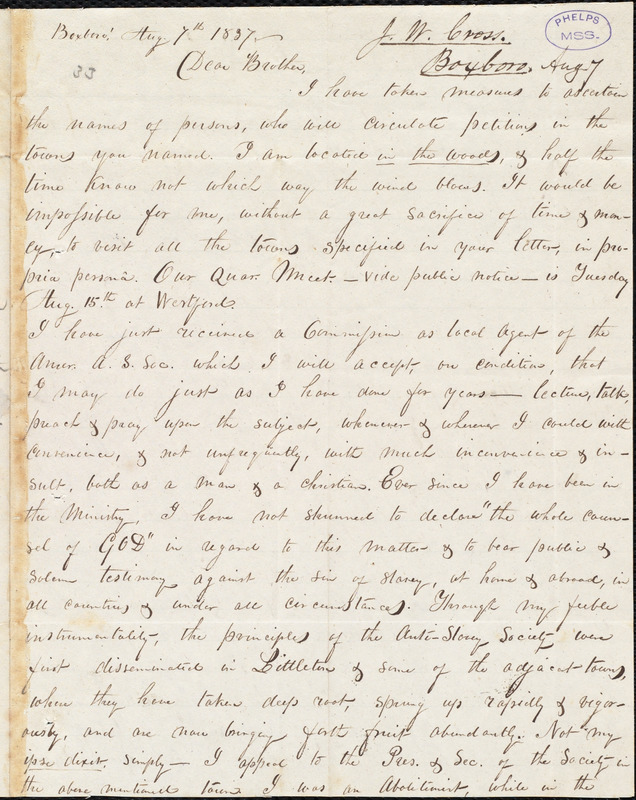 Boxboro' Aug. 7th 1837.
J. W. Cross.
PHELPS
MSS.
33
Dear Brother,
Boxboro. Aug 7
I have taken measures to ascertain
the names of persons, who will circulate petitions in the
towns you named. I am located in the woods, & half the
time know not which way the wind blows. It would be
impossible for me, without a great sacrifice of time & mon-
ey, to visit all the towns specified in your letter, in pro-
pria persona. Our Quar. Meet. - vide public notice - is Tuesday
Aug. 15th at Westford.
I have just received a Commission as local Agent of the
Amer. A. S. Soc. which I will accept on condition, that
I may do just as I have done for years - lecture, talk,
preach & pray upon the subject, whenever & wherever I could with
convenience, & not unfrequently, with much inconvenience & in-
sult, both as a man & a christian. Ever since I have been in
the Ministry, I have not shunned to declare "the whole coun-
sel of GOD" in regard to this matter & to bear public &
solemn testimony against the sin of slavery, at home & abroad, in
all countries & under all circumstances. Through my feeble
instrumentality, the principles of the Anti-Slavery Society were
first disseminated in Littleton & some of the adjacent towns,
where they have taken deep root, sprung up rapidly & vigor-
ously, and are now bringing forth fruit abundantly. Not my
ipse dixit simply - I appeal to the Pres. & Sec. of the Society in
the above mentioned town. I was an Abolitionist, while in the